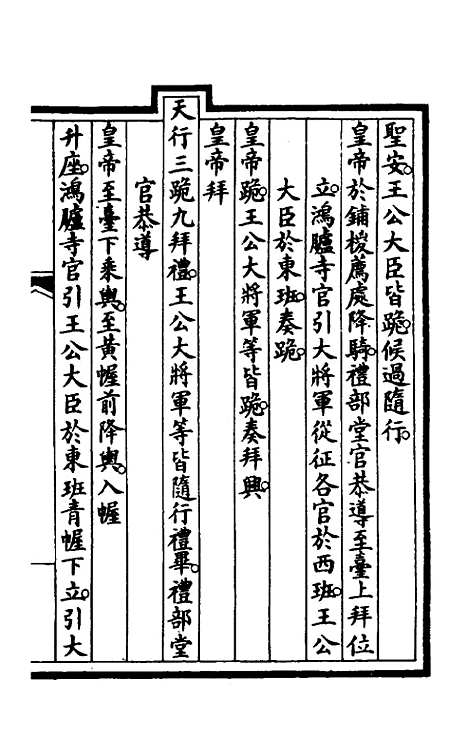 聖安。王公大臣皆跪候過隨行。
皇帝於鋪椶薦處降騎。禮部堂官恭導至臺上拜位
立。鴻臚寺官引大將軍從征各官於西班。王公
大臣於東班。奏跪。
皇帝跪。王公大將軍等皆跪。奏拜興。
皇帝拜
天行三跪九拜禮。王公大將軍等皆隨行禮畢。禮部堂
官恭導
皇帝至臺下乘輿。至黃幄前降輿。入幄
升座。鴻臚寺官引王公大臣於東班青幄下立。引大